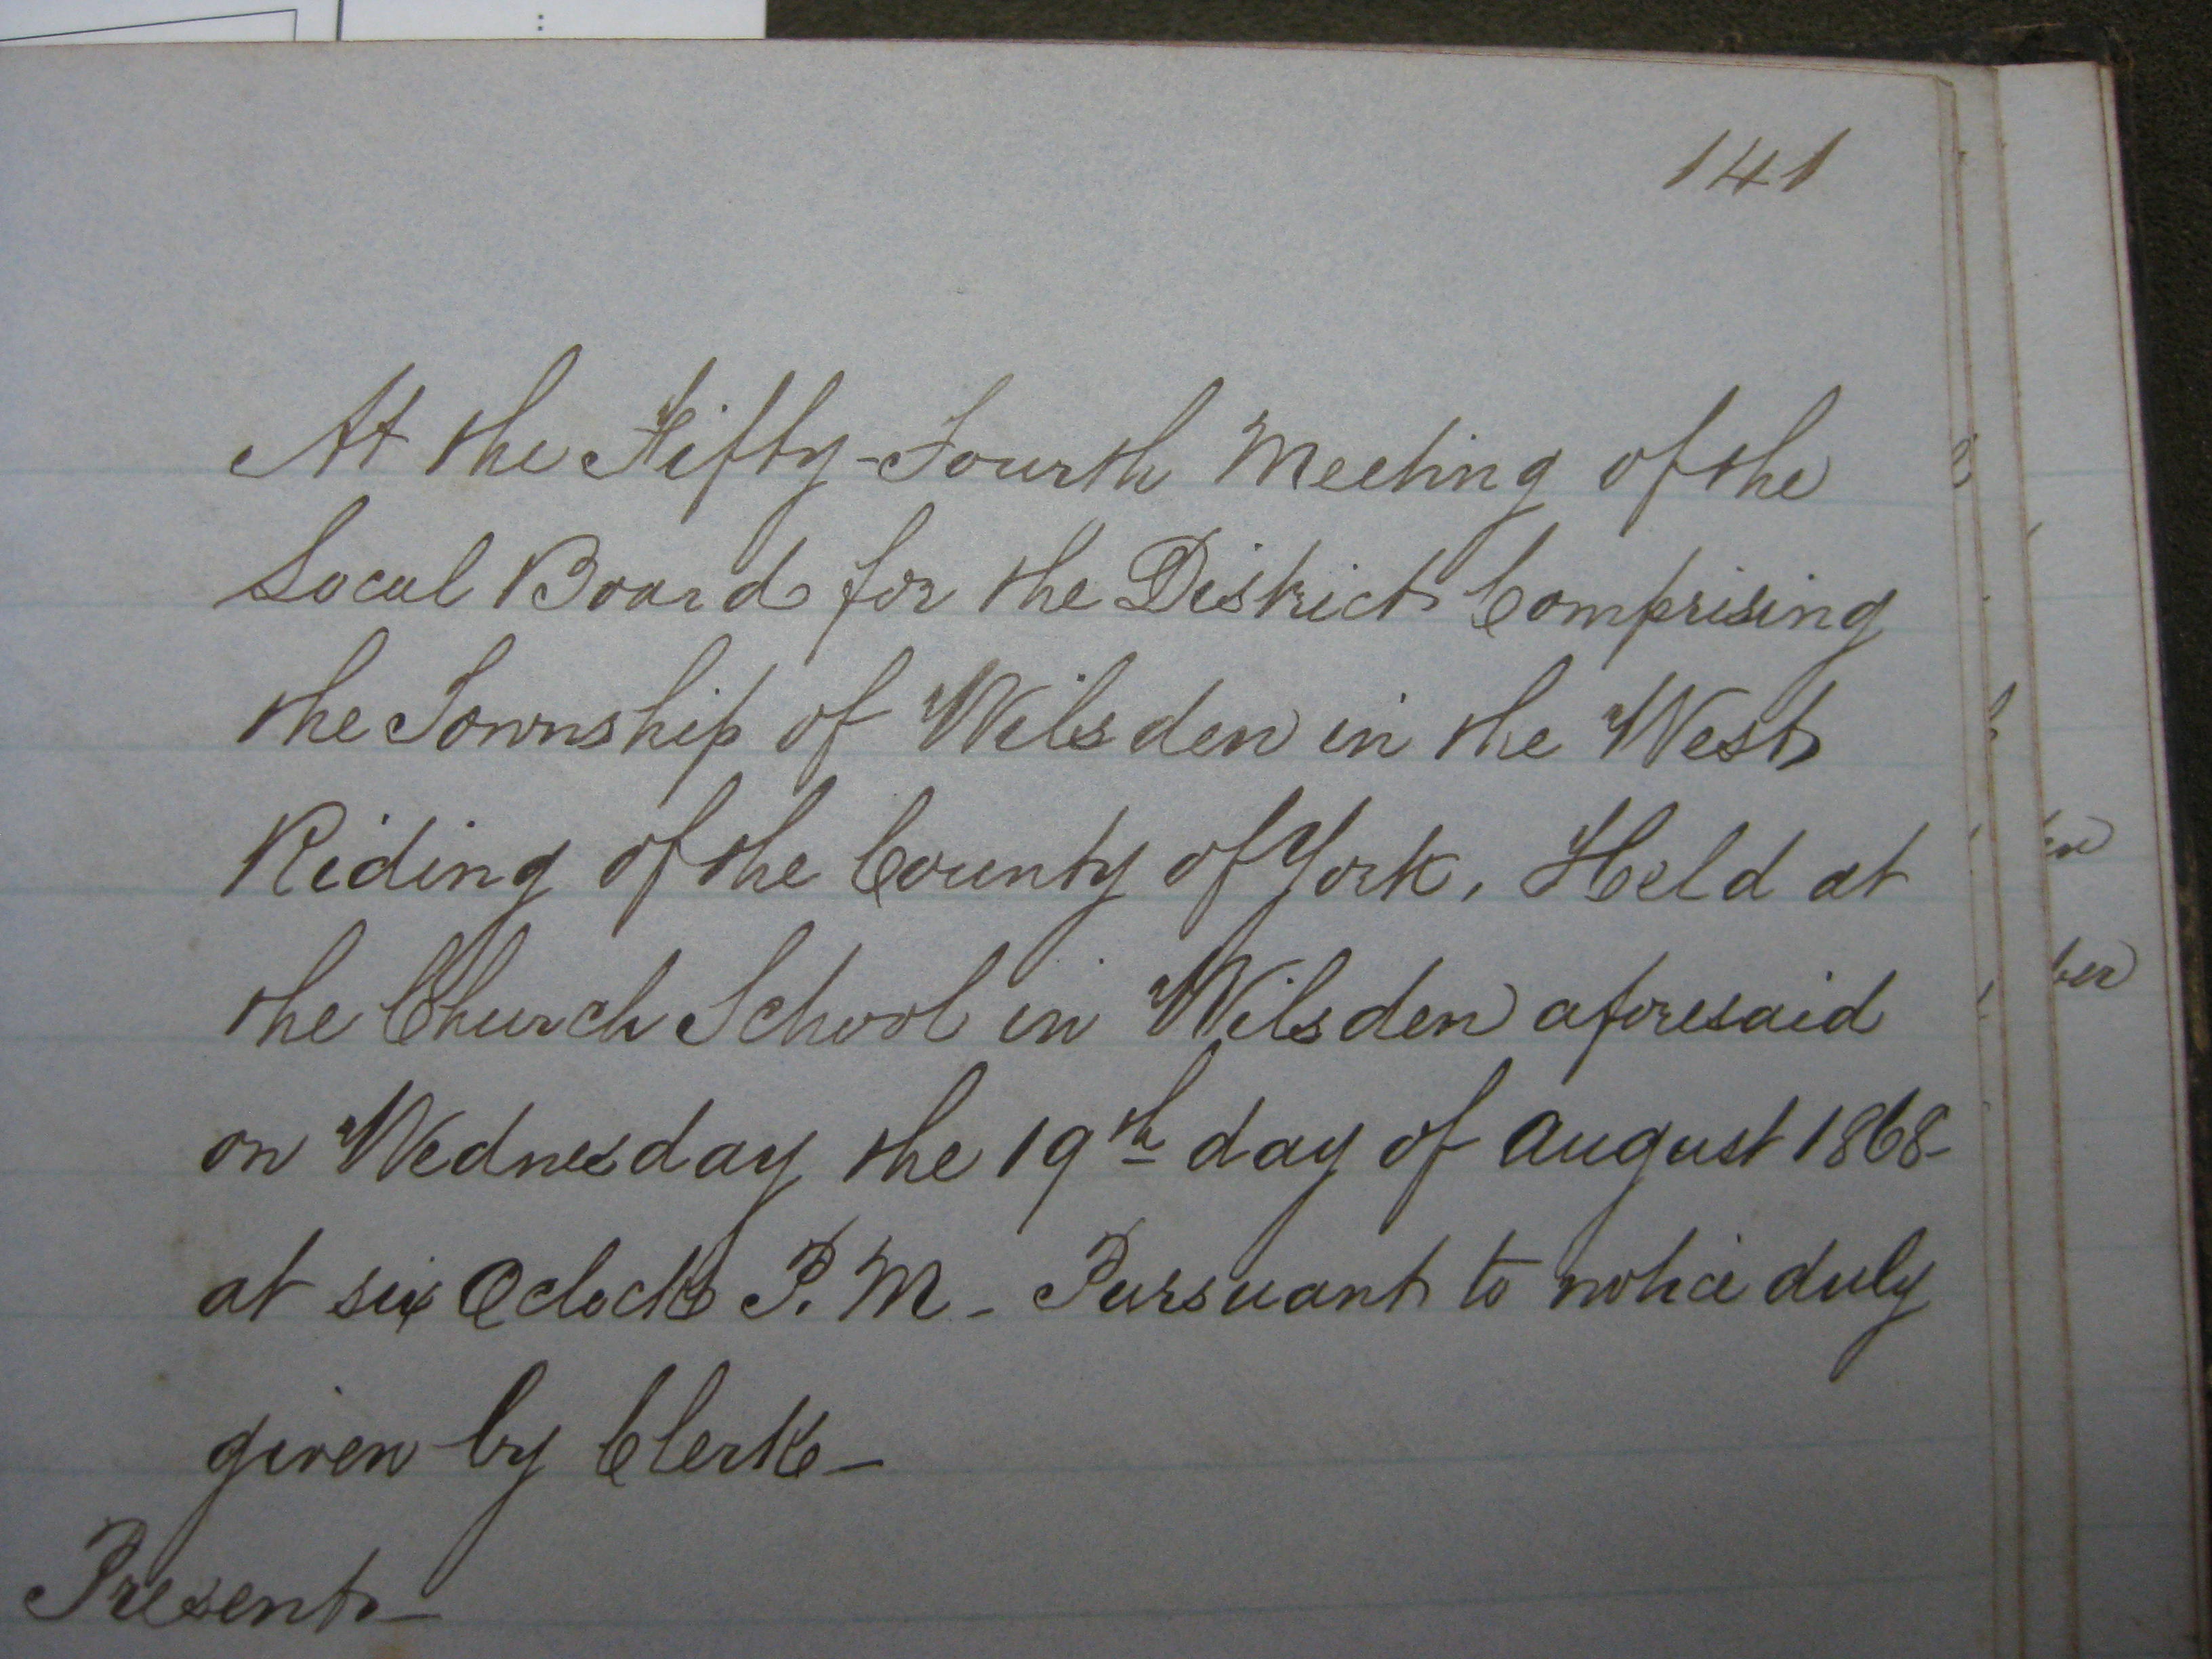 141
At the Fifty-Fourth Meeting of the
Local Board for the District Comprising
the Township of Wilsden in the West
Riding of the County of York, Held at
the Church School in Wilsden aforesaid
on Wednesday the 19th day of August 1868-
at six Oclock P. M - Pursuant to notice duly
given by Clerk -
Present -